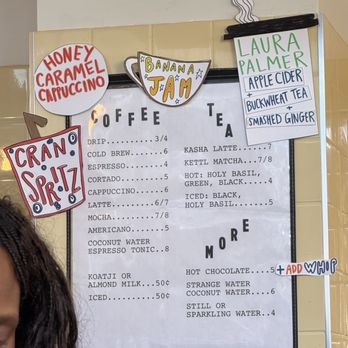 HONEY
CARAMEL
CAPPUCCINO
BANANA
JAM
LAURA
PALMER
APPLE CIDER
+
BUCKWHEAT TEA
+
SMASHED GINGER
CRAN
SPRITZ
COFFEE
DRIP...........3/4
COLD BREW......6
ESPRESSO.......4
CORTADO........5
CAPPUCCINO.....6
LATTE..........6/7
MOCHA..........7/8
AMERICANO......5
COCONUT WATER
ESPRESSO TONIC..8
KOATJI OR
ALMOND MILK...50¢
ICED..........50¢
TEA
KASHA LATTE.....7
KETTL MATCHA...7/8
HOT: HOLY BASIL,
GREEN, BLACK....4
ICED: BLACK,
HOLY BASIL......5
MORE
HOT CHOCOLATE....5
+ADD WHIP
STRANGE WATER
COCONUT WATER...6
STILL OR
SPARKLING WATER..4